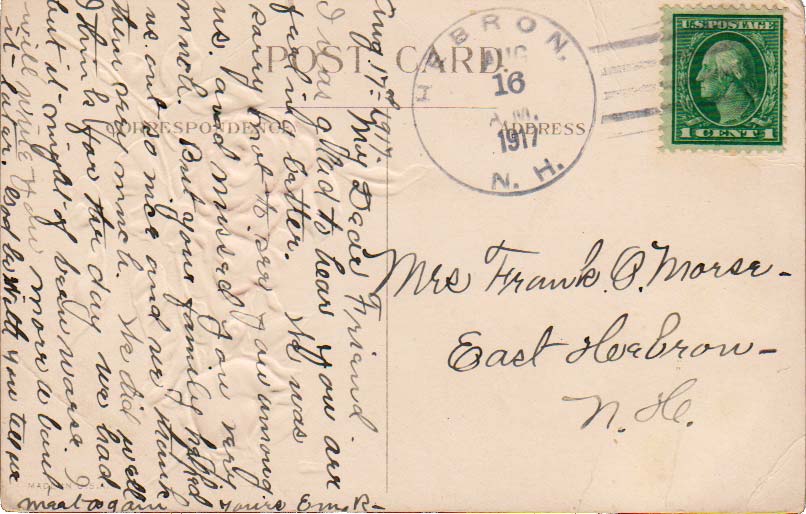 POST CARD.
CORRESPONDENCE
ADDRESS
HEBRON,
AUG
16
A.M.
1917
N. H.
U.S. POSTAGE
1 CENT 1
Mrs Frank. P. Morse -
East Hebron -
N. H.
Aug 17th 1917.
My Dear Friend -
I was glad to hear you are
feeling better. We was
sorry not to see you among
us. and missed you very
much. But your family helped
us out so nice and we thank
them very much. We did well
I think for the day we had
but it might of been worse. I
will write you more about
it later. God be with you till we
meet again yours E.M.R-
MADE IN U.S.A.